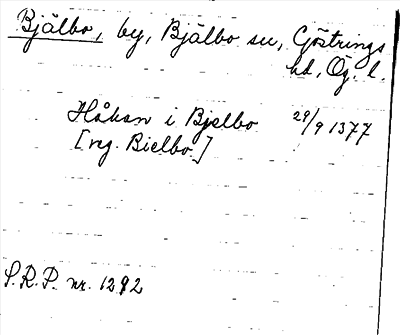 Bjälbo, by, Bjälbo sn, Göstrings
hd, Ög. l.
Håkan i Bjelbo 29/9 1377
[rg. Bielbo]
S.R.P. nr. 1292